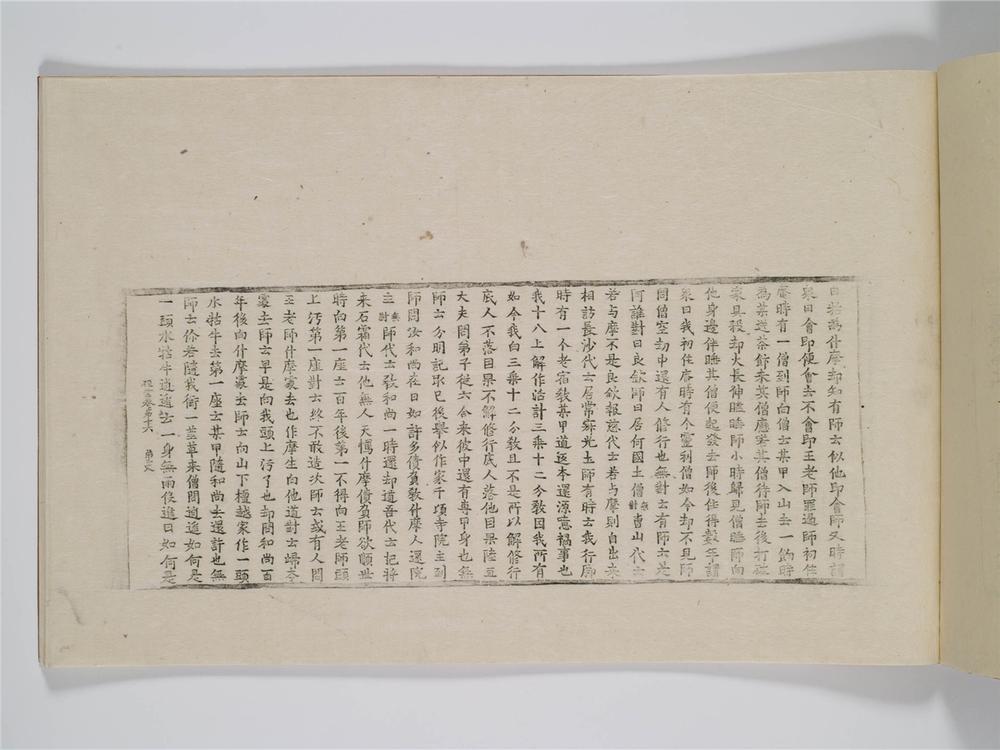 白牯為什摩却知有師云似他即會師又時謂
衆曰會即便會去不會即王老師罪過師初住
庵時有一僧到師向僧云某甲入山去一餉時
為某送茶飰來其僧應喏其僧待師去後打破
家具殺却火長伸瞌睡師小時歸見僧睡師向
他身邊伴睡其僧便起發去師後住得數年謂
衆曰我初住庵時有今靈利僧如今却不見師
問僧空劫中還有人修行也無對云有師云是
阿誰對曰良欽師曰居何國土僧無對曹山代云
若与摩不是良欽報慈代云若与摩則自出來
相訪長沙代云居常寂光土師有時云我行廊
時有一个老宿教某甲道返本還源噫禍事也
我十八上解作活計三乘十二分教因我所有
如今我向三乘十二分教且不是所以解修行
底人不落因果不解修行底人落他因果陸亘
大夫問弟子從六合來彼中還有專甲身也無
師云分明記取已後舉似作家千頃寺院主到
師問汝和尚在日如許多債負教什摩人還院
主無對師代云教和尚一時還却道吾代云記將
來石霜代云他無人天悞什摩債負師欲順世
時向第一座云百年後第一不得向王老師頭
上汚第一座對云終不敢造次師云或有人問
王老師什摩處去也作摩生向他道對云歸本
處去師云早是向我頭上汚了也却問和尚百
年後向什摩處去師云向山下檀越家作一頭
水牯牛去第一座云某甲隨和尚去還許也無
師云你若隨我銜一莖草來僧問逍遙如何是
一頭水牯牛逍遙云一身無兩役進曰如何是
祖堂卷第十六